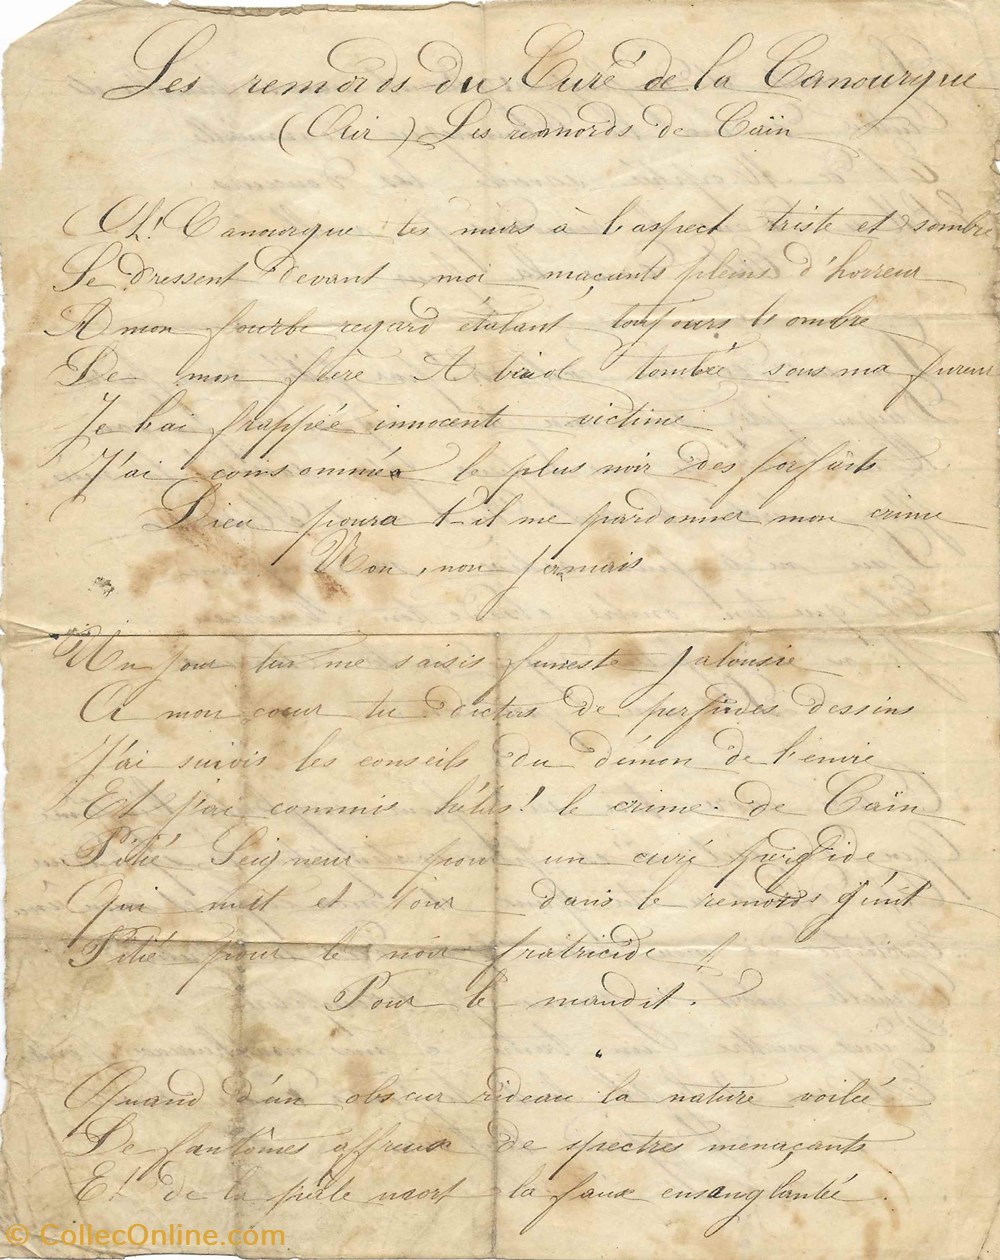 Les remords du Curé de la Canourgue
(Air) Les remords de Caïn
Ah! Canourgue tes murs à l'aspect triste et sombre
Se dressent devant moi maçants pleins d'horreur
A mon fourbe regard étalant toujours l'ombre
De mon frère tombée sous ma fureur
Je l'ai frappée innocente victime
J'ai consommée le plus noir des forfaits
Dieu poura t-il me pardonner mon crime
Non, non jamais
Un jour tu me saisis funeste jalousie
A mon coeur tu dictas de perfides dessins
J'ai suivis les conseils du démon de l'envie
Et j'ai commis hélas! le crime de Caïn
Pitié Seigneur pour un curé perfide
Qui nuit et jour dans le remords gémit
Pitié pour le noir fratricide
Pour le maudit.
Quand d'un obscur rideau la nature voilée
De fantômes affreux de spectres menaçants
Et de la pâle mort la faux ensanglantée
© CollecOnline.com